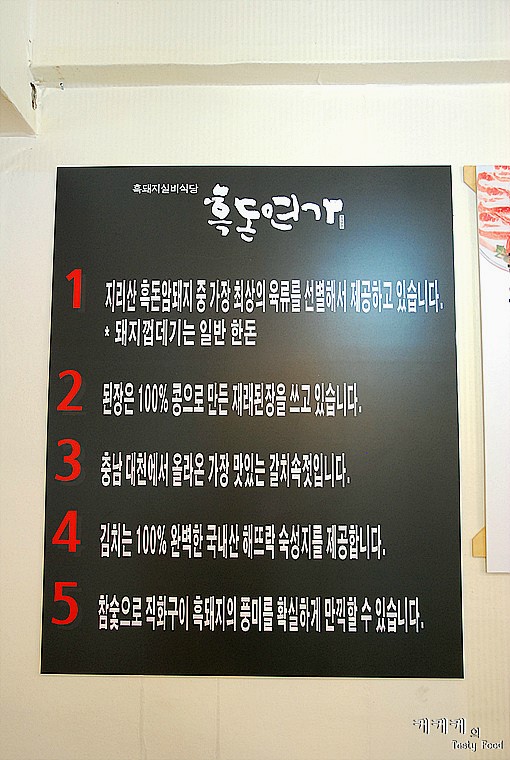 흑돼지실비식당
흑돈연가
1 지리산 흑돈암돼지 중 가장 최상의 육류를 선별해서 제공하고 있습니다.
* 돼지껍데기는 일반 한돈
2 된장은 100% 콩으로 만든 재래된장을 쓰고 있습니다.
3 충남 대천에서 올라온 가장 맛있는 갈치속젓입니다.
4 김치는 100% 완벽한 국내산 해뜨락 숙성지를 제공합니다.
5 참숯으로 직화구이 흑돼지의 풍미를 확실하게 만끽할 수 있습니다.
케케케의
Tasty Food